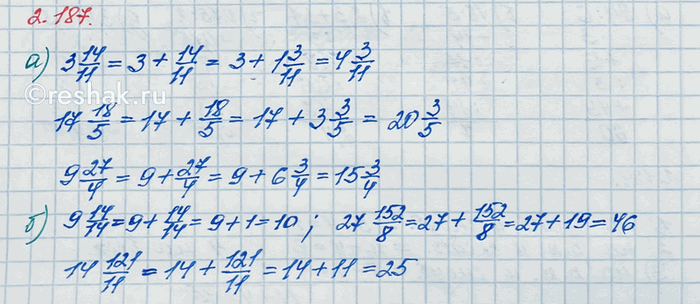 2.187.
а) 3 14/11 = 3 + 14/11 = 3 + 1 3/11 = 4 3/11
©reshak.ru
17 18/5 = 17 + 18/5 = 17 + 3 3/5 = 20 3/5
9 27/4 = 9 + 27/4 = 9 + 6 3/4 = 15 3/4
б) 9 14/14 = 9 + 14/14 = 9 + 1 = 10 ; 27 152/8 = 27 + 152/8 = 27 + 19 = 46
14 121/11 = 14 + 121/11 = 14 + 11 = 25